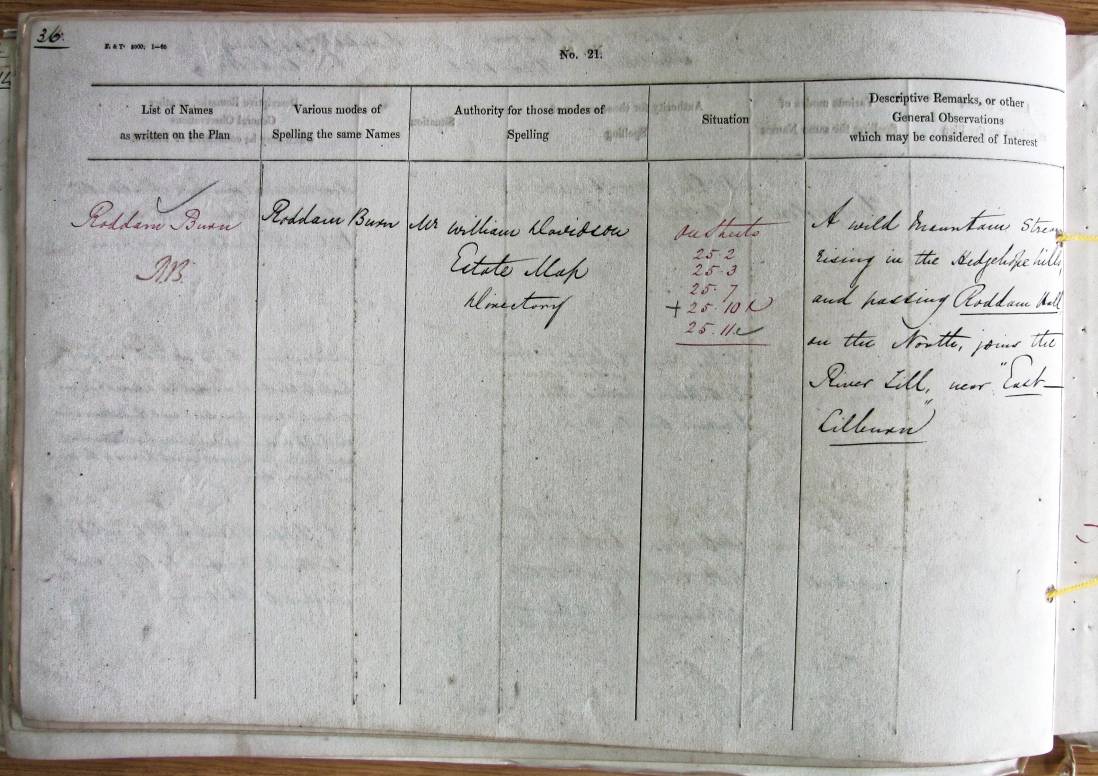 36.
E & T. 2000, 1—60
No. 21.
List of Names
as written on the Plan
Various modes of
Spelling the same Names
Authority for those modes of
Spelling
Situation
Descriptive Remarks, or other
General Observations
which may be considered of Interest
Roddam Burn
Roddam Burn
Mr William Davidson
Estate Map
Directory
On Sheets
25.2
25.3
25.7
+ 25.10
25.11
A wild Mountain Stream
rising in the Hedgehope hills,
and passing Roddam Hall
on the North, joins the
River Till, near "East
Lilburn"